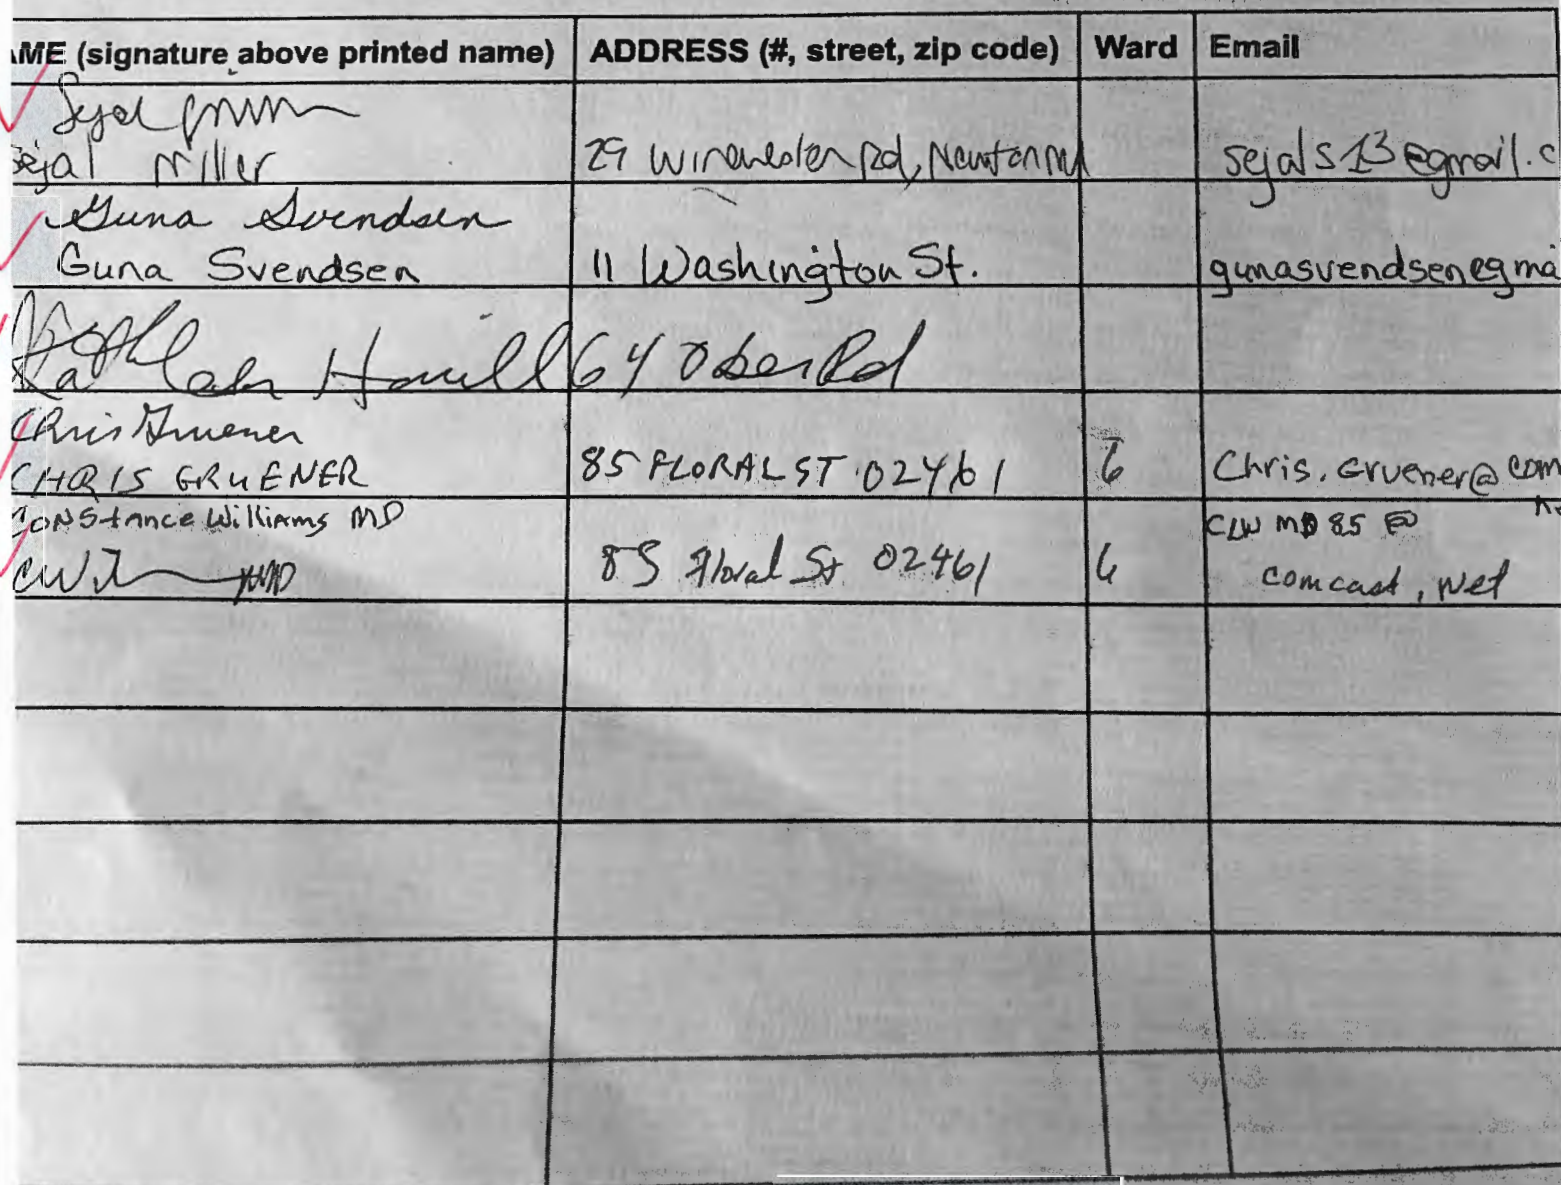 AME (signature above printed name) ADDRESS (#, street, zip code) Ward Email
Sejal
Sejal Miller 29 Winchester Rd, Newton MA sejals13@gmail.c
Guna Svendsen
Guna Svendsen 11 Washington St. gunasvendsen@gma
Kathleen 64 Ober Rd
Chris Gruener
CHRIS GRUENER 85 FLORAL ST 02461 6 Chris.Gruener@com
Constance Williams MD CLW MD 85 @
85 Floral St 02461 6 comcast, net